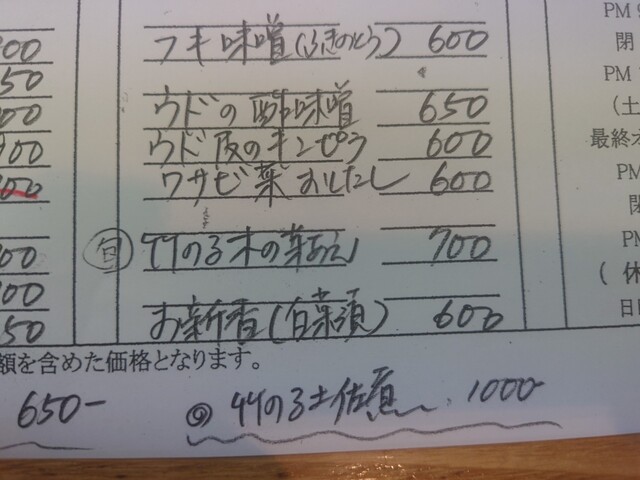 フキ味噌(ふきのとう) 600
ウドの酢味噌 650
ウド皮のキンピラ 600
ワサビ葉おひたし 600
旬 竹の子木の芽あえ 700
お新香(白菜漬) 600
額を含めた価格となります。
650-
竹の子土佐煮 1000-
00
50
00
00
00
00
00
50
PM
閉
PM
(土
最終オ
PM
閉
PM
(休
日